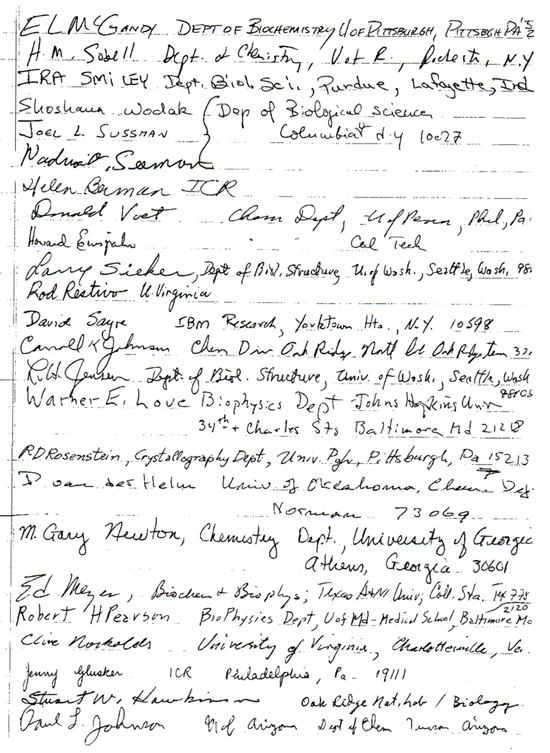 EL McGandy Dept of Biochemistry U of Pittsburgh, Pittsbgh Pa
H. M. Sobell Dept. of Chemistry, U of R., Rochester, N.Y
IRA SMILEY Dept. Biol. Sci., Purdue, Lafayette, Ind
Shoshana Wodak Dep of Biological sciences
JOEL L SUSSMAN Columbia N.Y 10027
Nadrian Seeman
Helen Berman ICR
Donald Voet Chem Dept, U of Penn, Phil, Pa.
Howard Einspahr " " Cal Tech
Larry Sieker, Dept of Biol. Structure, U. of Wash., Seattle, Wash, 981
Rod Restivo U. Virginia
David Sayre IBM Research, Yorktown Hts., N.Y. 10598
Carroll K Johnson Chem Div Oak Ridge Natl Lab Oak Ridge Tenn 37
L. H. Jensen Dept. of Biol. Structure, Univ. of Wash., Seattle, Wash
98105
Warner E. Love Biophysics Dept Johns Hopkins Univ
34th + Charles Sts Baltimore Md 21218
RD Rosenstein, Crystallography Dept, Univ. Pgh, Pittsburgh, Pa 15213
D van der Helm Univ of Oklahoma, Chem Dep
Norman 73069
M. Gary Newton, Chemistry Dept., University of Georgia
Athens, Georgia 30601
Ed Meyer, Biochem & Biophys, Texas A&M Univ, Coll. Sta. TX 778
Robert H Pearson BioPhysics Dept, U of Md-Medical School, Baltimore Md
2120
Clive Nockolds University of Virginia, Charlottesville, Va.
Jenny Glusker ICR Philadelphia, Pa- 19111
Stuart W. Hawkinson Oak Ridge Nat. Lab / Biology
Paul L. Johnson U of Arizona Dept of Chem Tucson Arizona